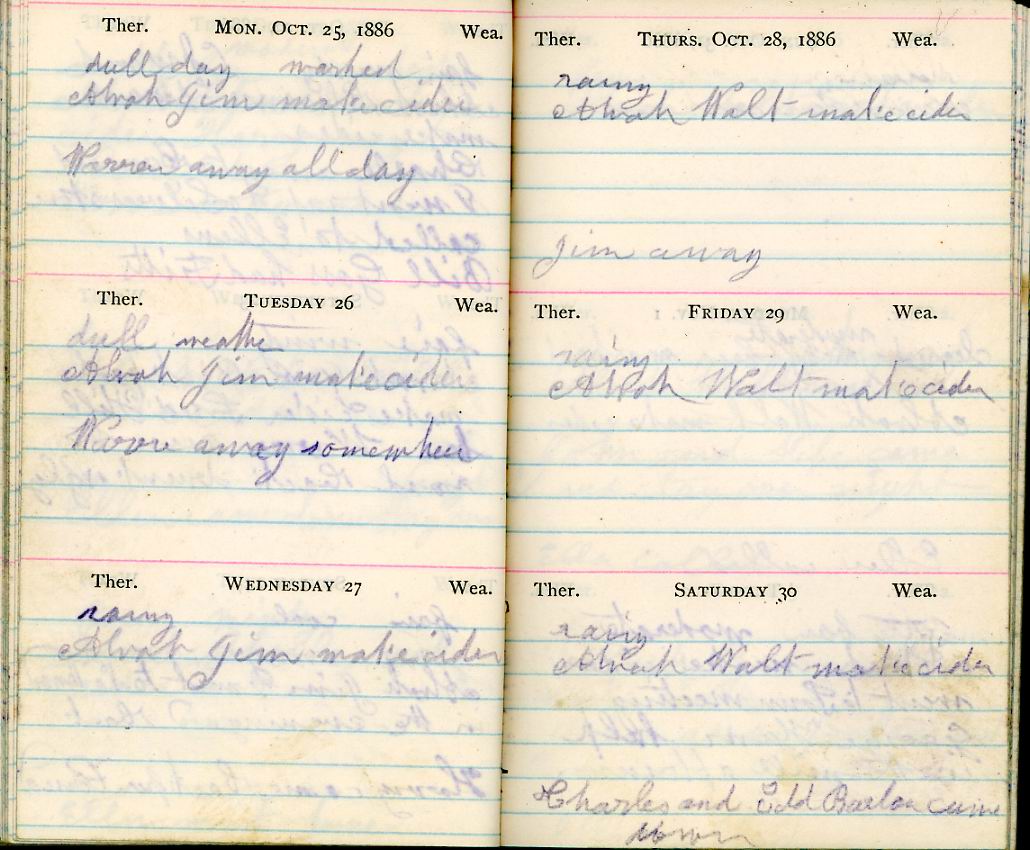 Ther. MON. OCT. 25, 1886 Wea.
dull day washed
Alvah Jim make cider
Warren away all day
Ther. TUESDAY 26 Wea.
dull weathe
Alvah Jim make cider
away somewheer
Ther. WEDNESDAY 27 Wea.
rainy
Alvah Jim make cider
Ther. THURS. OCT. 28, 1886 Wea.
rainy
Alvah Walt make cider
Jim away
Ther. FRIDAY 29 Wea.
rainy
Alvah Walt make cider
Ther. SATURDAY 30 Wea.
rainy
Alvah Walt make cider
Charles and Edd came
down